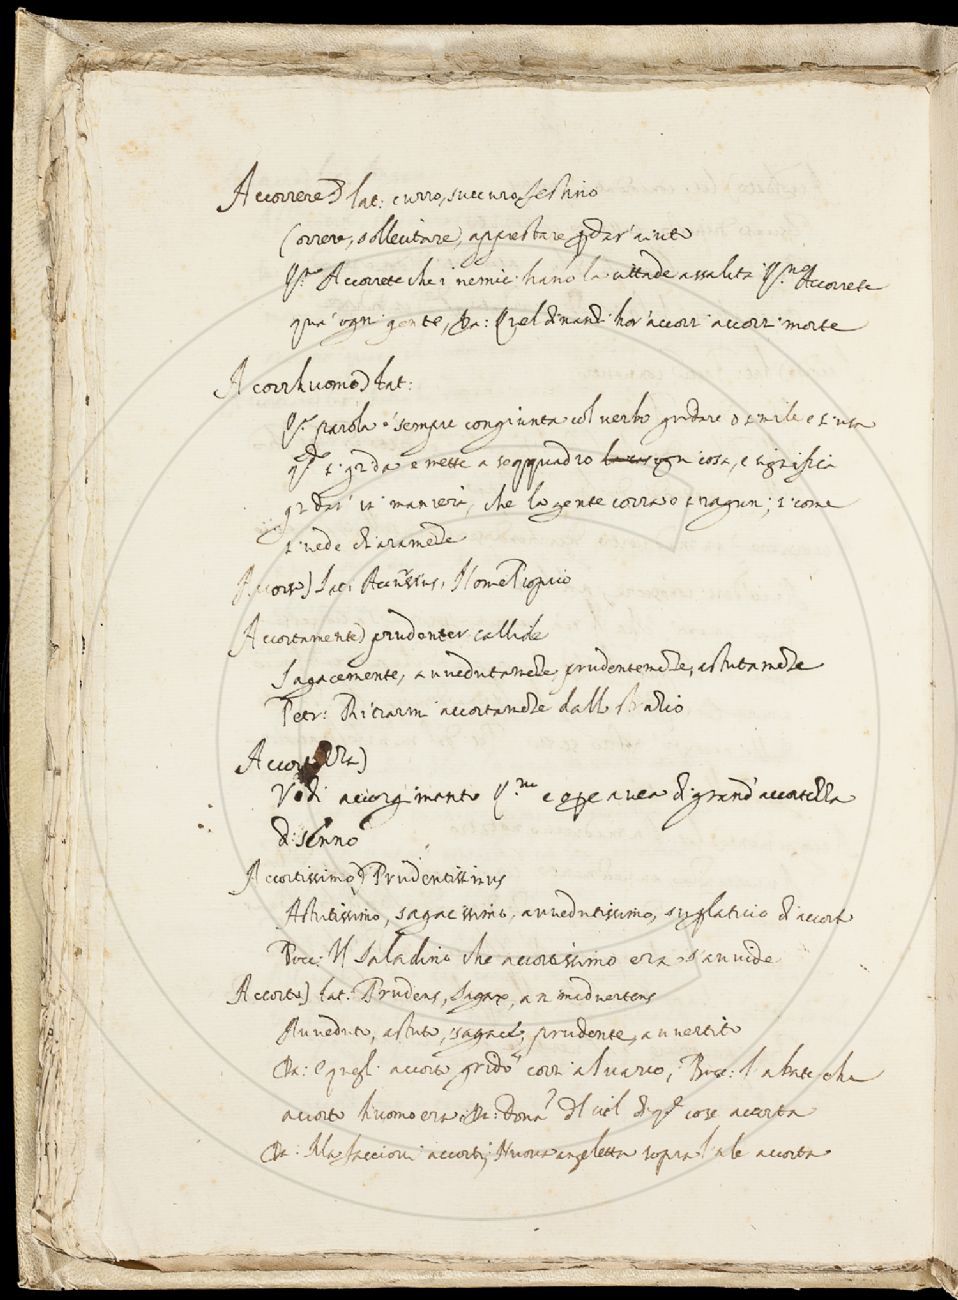 Accorrere) lat: curro, succurro, festino
Correre, sollecitare, apprestare p dar' aiuto
Accorrete che i nemici hano la cittade assalita Accorrete
qua' ogni gente, Da: Quel dinanzi hor' accorri accorri morte
Acorrhuomo) lat:
parola è sempre congiunta col verbo gridare o simile e s'usa
si grida e mette a soqquadro ogni cosa, e significa
gridar' in maniera, che la gente corra o si raguni; si come
si vede chiaramte
Accorso) Lat: Accursius, Nome Proprio
Accortamente) prudenter callide
Sagacemente, avvedutamte, prudentemte, astutamte
Petr: Ritrarmi accortamte dallo strazio
Accortezza)
Vedi accorgimento e avea di grand' accortezza
di senno
Accortissimo) Prudentissimus
Astutissimo, sagacissimo, avvedutissimo, suplativo di accorto
Bocc: Il Saladino che accortissimo era s'avvide
Accorto) lat: Prudens, Sagax, animadvertens
Avveduto, astuto, sagace, prudente, avvertito
Da: E quegli accorto gridò corri al varco, Bocc: l'abate che
accorto huomo era Pe: Donna del ciel di cose accorta
accorti, Nuova angeletta sopra l'ale accorta